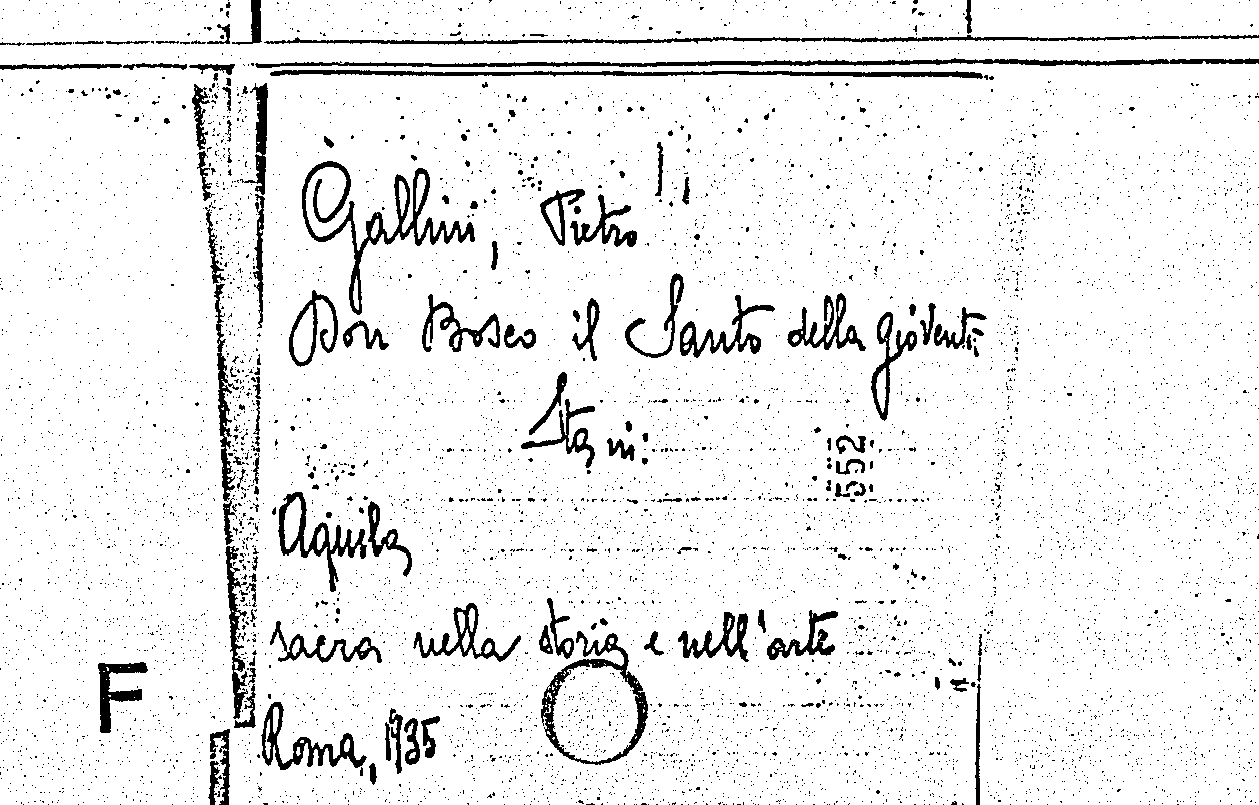 Gallini, Pietro
Don Bosco il Santo della gioventù
Sta in:
552
Aquila
sacra nella storia e nell'arte
F
Roma, 1935